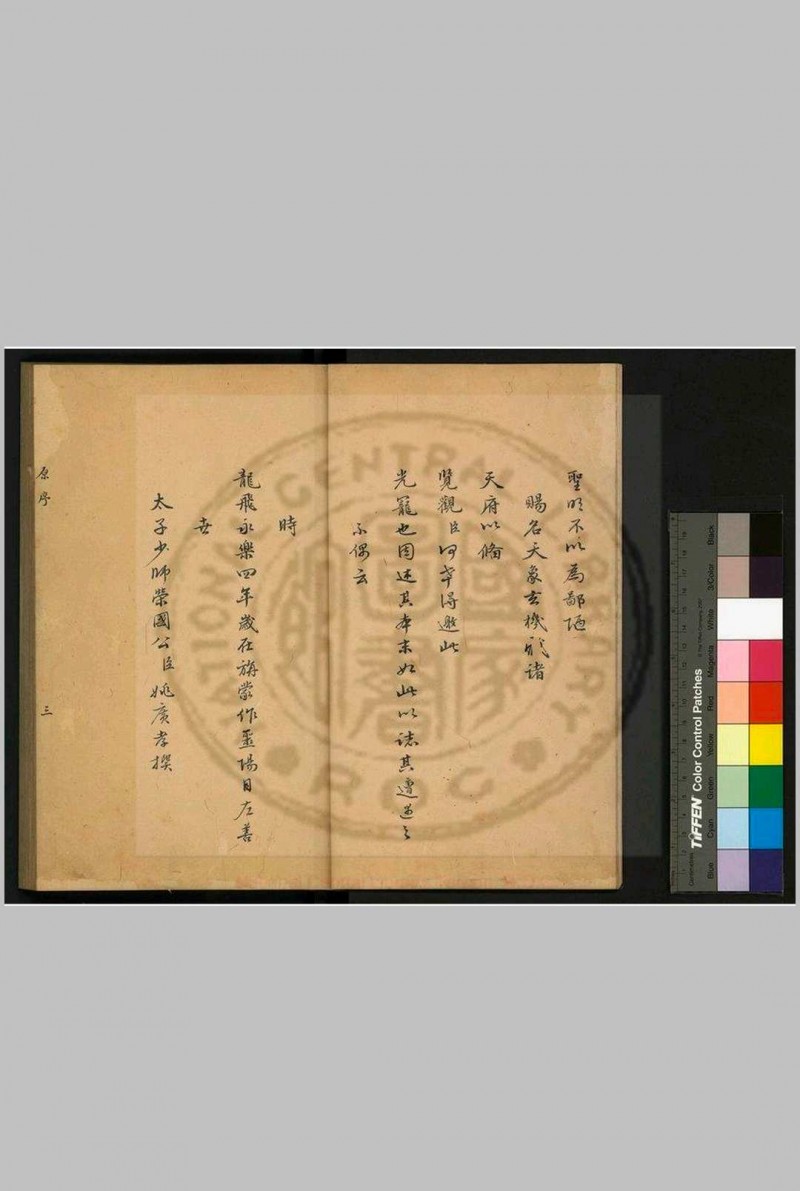 聖明不以為鄙陋
賜名天象玄機弆諸
天府以備
覽觀臣何幸得邀此
光寵也因述其本末如此以誌其遭遇之
不偶云
時
龍飛永樂四年歲在旃蒙作噩陽月左善
世
太子少師榮國公臣姚廣孝撰
原序
三
CENTRAL
ROC
TIFFEN Color Control Patches
Blue
Cyan
Green
Yellow
Red
Magenta
White
3/Color
Black
Centimetres